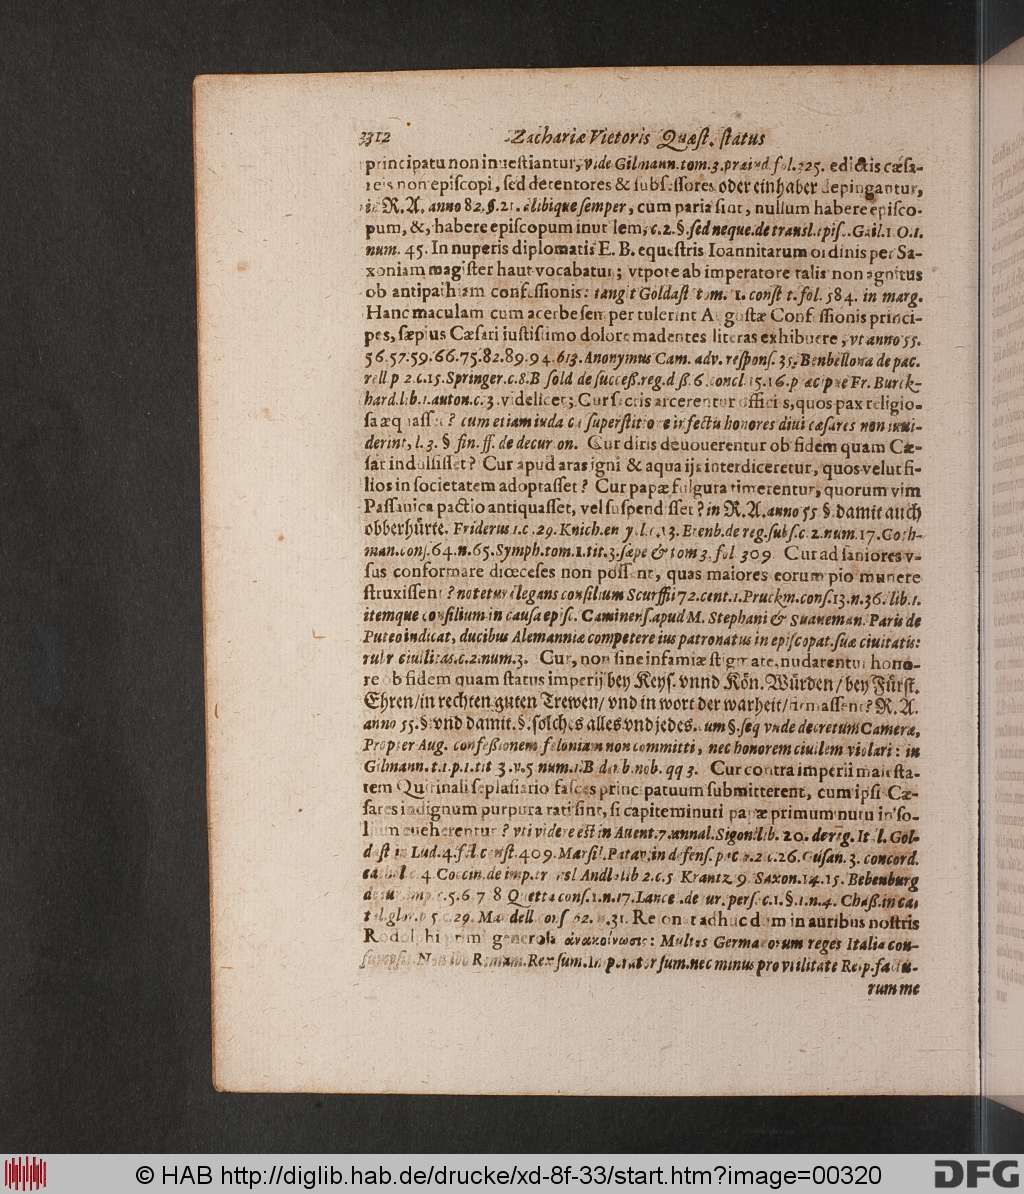 3312 Zachariæ Vietoris Quæst. status
principatu non inuestiantur, vide Gilmann. tom. 3. præiud. fol. 225. edictis cæsa-
reis non episcopi, sed detentores & subsessores oder einhaber depingantur,
in R. A. anno 82. §. 21. alibique semper, cum paria sint, nullum habere episco-
pum, &, habere episcopum inutilem, c. 2. §. sed neque. de transl. epis. Gail. 1. O. 1.
num. 45. In nuperis diplomatis E. B. equestris Ioannitarum ordinis per Sa-
xoniam magister haut vocabatur; vtpote ab imperatore talis non agnitus
ob antipathiam confessionis: tangit Goldast. tom. 1. const. t. fol. 584. in marg.
Hanc maculam cum acerbe semper tulerint Augustæ Confessionis princi-
pes, sæpius Cæsari iustissimo dolore madentes literas exhibuere, vt anno 55.
56. 57. 59. 66. 75. 82. 89. 94. 613. Anonymus Cam. adv. respons. 35. Benbellona de pac.
rell. p 2. c. 15. Springer. c. 8. B sold de success. reg. dss. 6. concl. 15. 16. præcipue Fr. Burck-
hard. lib. 1. auton. c. 3. videlicet; Cur sectis arcerentur officiis, quos pax religio-
sa æquasset? cum etiam iudaica superstitione infectis honores diui cæsares non inui-
derint, l. 3. § fin. ff. de decurion. Cur diris deuouerentur ob fidem quam Cæ-
sar indulsisset? Cur apud aras igni & aqua ijs interdiceretur, quos velut fi-
lios in societatem adoptasset? Cur papæ fulgura timerentur, quorum vim
Passauica pactio antiquasset, vel suspendisset? in R. A. anno 55 §. damit auch
obberhürte. Friderus 1. c. 29. Knich. en y. l. c. 13. Erenb. de reg. subs. c. 2. num. 17. Goth-
man. cons. 64. n. 65. Symph. tom. 1. tit. 3. sæpe & tom 3. fol 309. Cur ad saniores v-
sus conformare diœceses non possent, quas maiores eorum pio munere
struxissent? notetur elegans consilium Scurffii 72. cent. 1. Pruckm. cons. 13. n. 36. lib. 1.
itemque consilium in causa episc. Caminens. apud M. Stephani & Suaneman. Paris de
Puteo indicat, ducibus Alemanniæ competere ius patronatus in episcopat. suæ ciuitatis:
rubr ciuilitas. c. 2. num. 3. Cur, non sine infamiæ stigmate, nudarentur hono-
re ob fidem quam status imperij bey Keys. vnnd Kön. Würden / bey Fürst.
Ehren / in rechten guten Trewen / vnd in wort der warheit / firmassent? R. A.
anno 55. § vnd damit. §. solches alles vnd jedes. cum §. seq vnde decretum Cameræ,
Propter Aug. confessionem feloniam non committi, nec honorem ciuilem violari: in
Gilmann. t. 1. p. 1. tit 3. v. 5 num. 1. B qq 3. Cur contra imperii maiesta-
tem Quirinali seplasiario fasces principatuum submitterent, cum ipsi Cæ-
sares indignum purpura rati sint, si capite minuti papæ primum nutu in so-
lium eueherentur? vti videre est in Auent. 7. annal. Sigon. lib. 20. de reg. Ital. Gol-
dast in Lud. 4. f. const. 409. Marsil. Patav. in defens. pac p. 2. c. 26. Cusan. 3. concord.
4 Coccin. de imp. Andl. lib 2. c. 5 Krantz. 9. Saxon. 14. 15. Bebenburg
c. 5. 6. 7 8 Quetta cons. 1. n. 17. Lance . de iur. pers. c. 1. §. 1. n. 4. Chass. in cat
c. 29. Mandell. cons 62. n. 31. Resonat adhuc dum in auribus nostris
Rodolphi primi generosa ἀνακοίνωσις: Multos Germanorum reges Italia con-
sumpsit, Non ibo Romam. Rex sum. Imperator sum. nec minus pro vtilitate Reip. factu-
rum me
© HAB http://diglib.hab.de/drucke/xd-8f-33/start.htm?image=00320
DFG